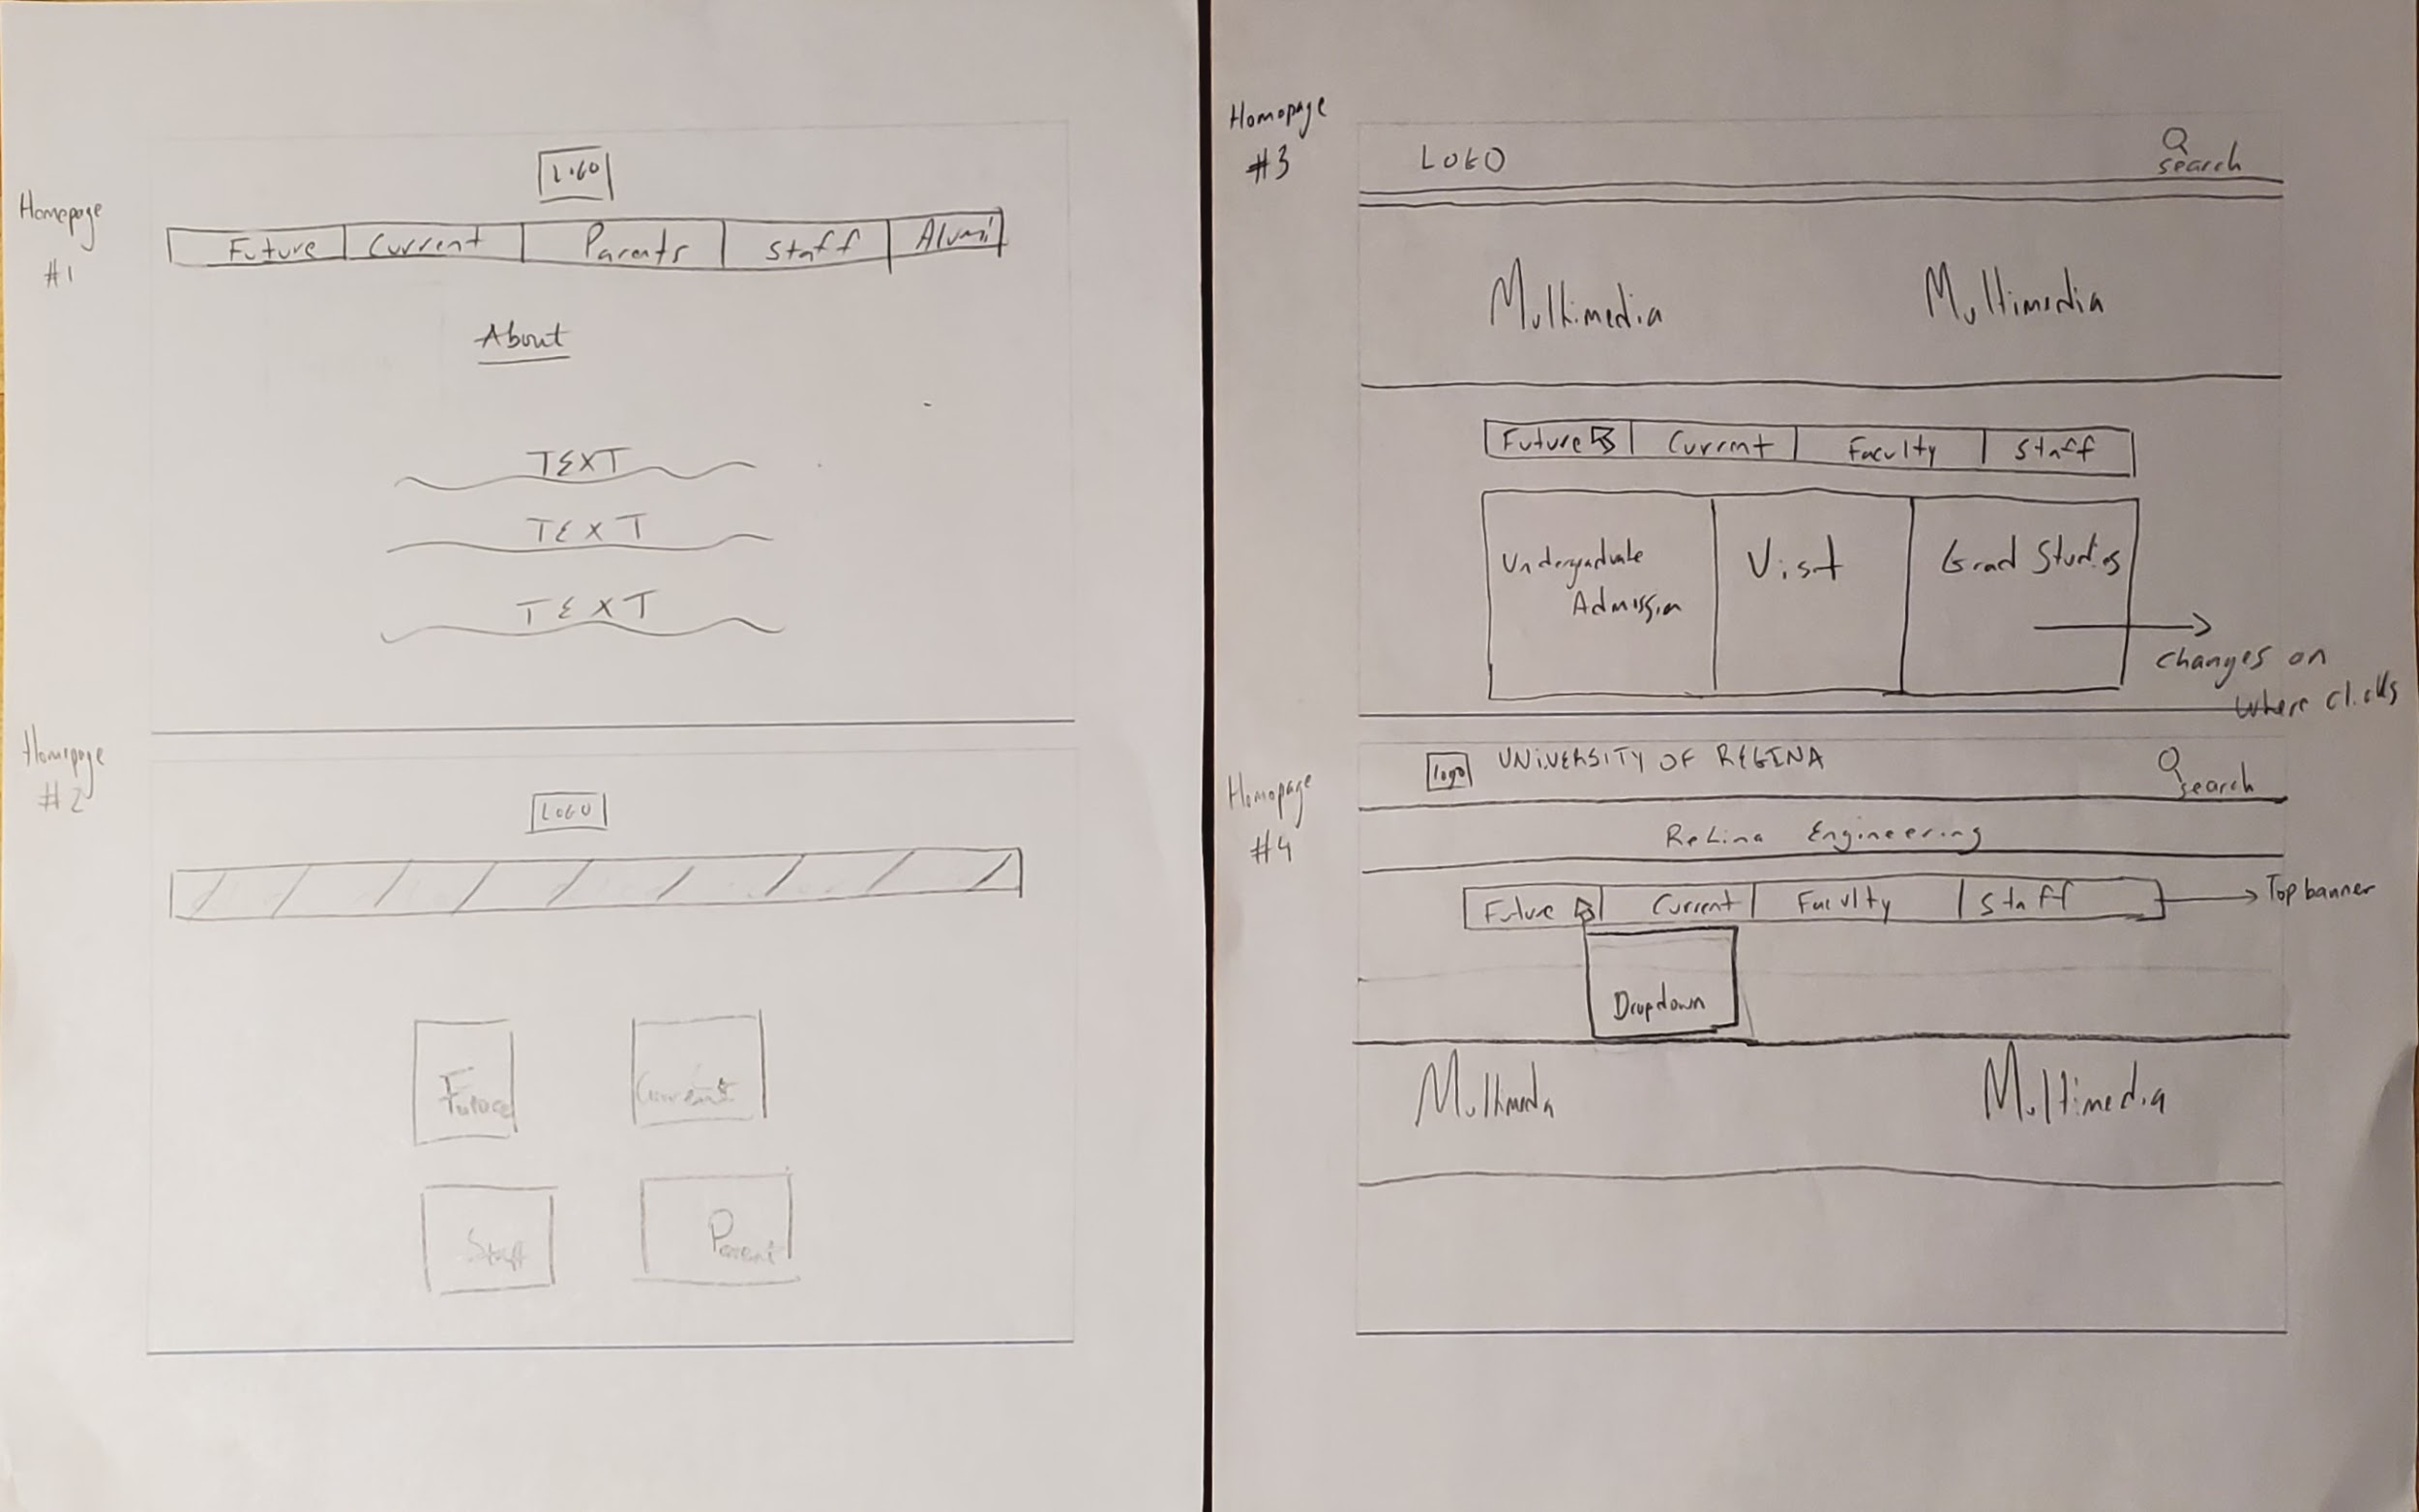 Homepage
#1
LOGO
Future Current Parents Staff Alumi
About
TEXT
TEXT
TEXT
Homepage
#2
LOGO
Future Current
Staff Parent
Homepage
#3
LOGO
search
Multimedia Multimedia
Future Current Faculty Staff
Undergraduate
Admission
Visit
Grad Studies
Changes on
where clicks
Homepage
#4
logo UNIVERSITY OF REGINA
search
ReGina Engineering
Future Current Faculty Staff
Top banner
Dropdown
Multimedia Multimedia